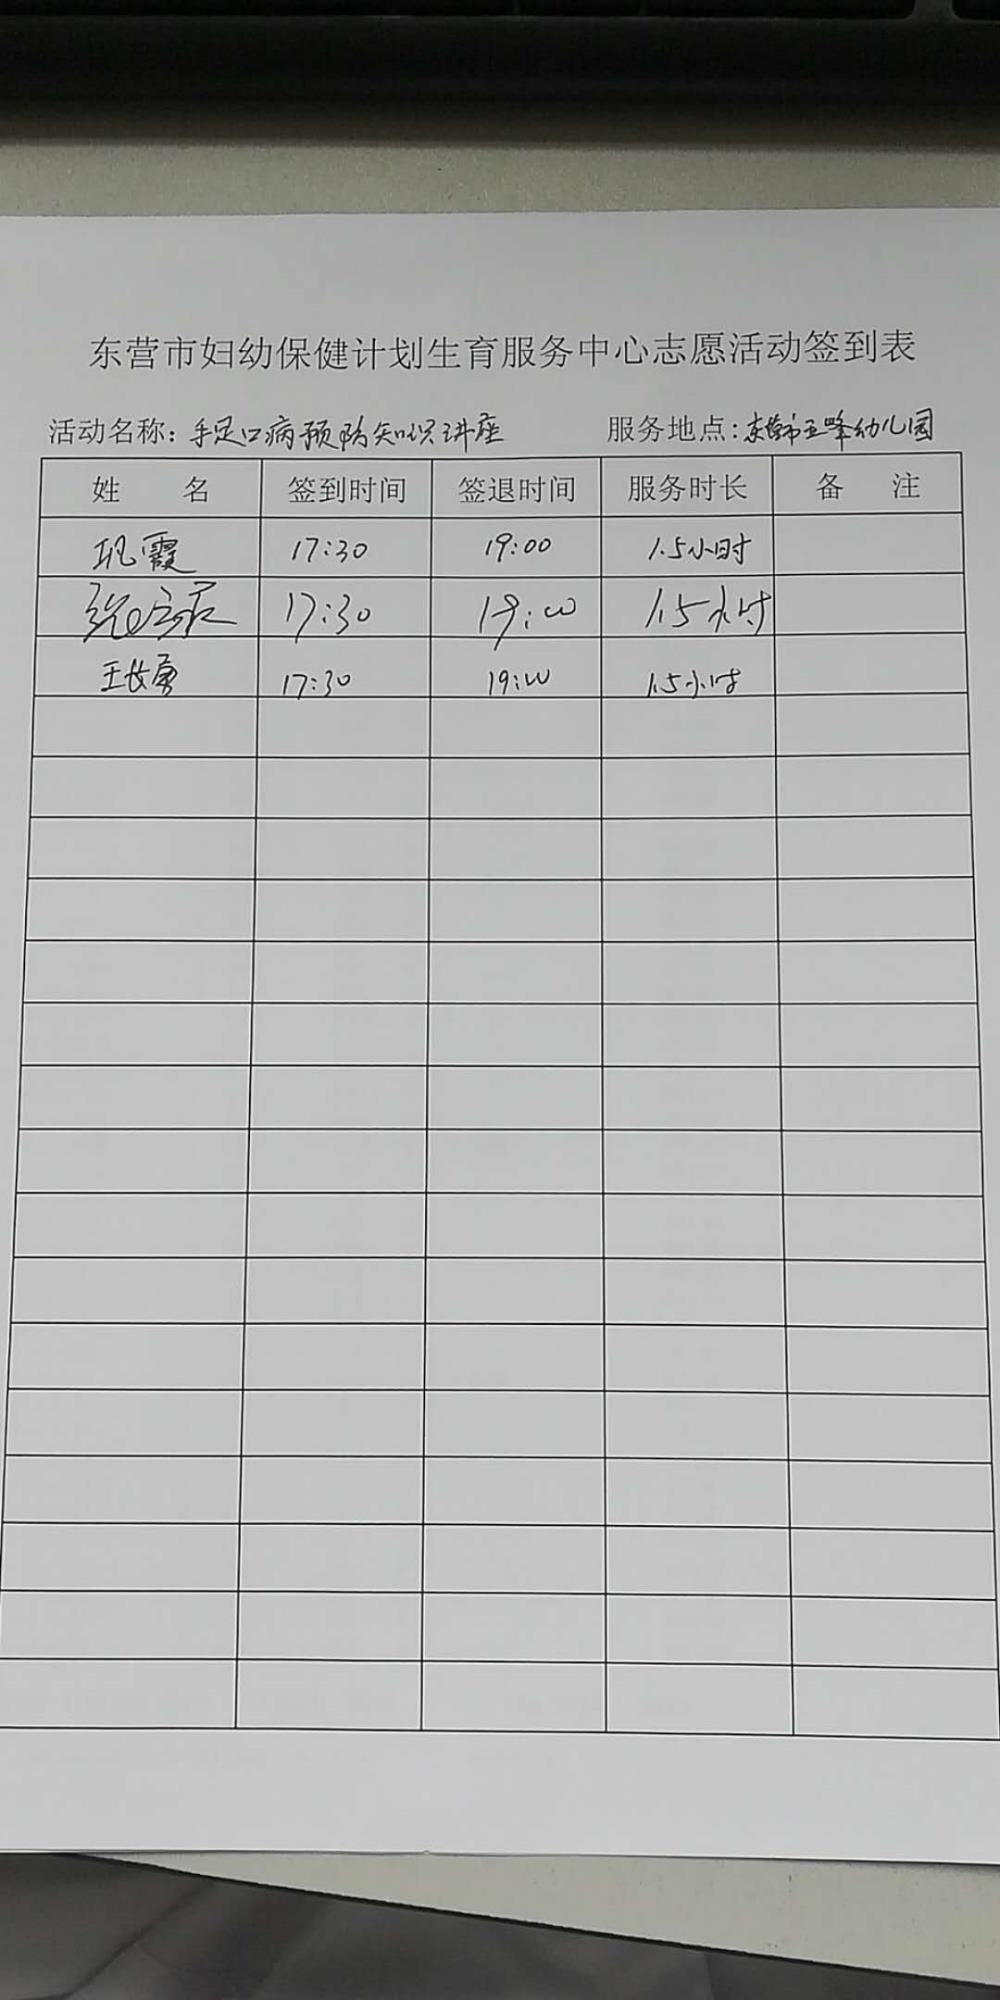 东营市妇幼保健计划生育服务中心志愿活动签到表
活动名称：手足口病预防知识讲座 服务地点：东营市五峰幼儿园
姓 名 签到时间 签退时间 服务时长 备 注
巩霞 17:30 19:00 1.5小时
17:30 19:00 1.5小时
王长勇 17:30 19:00 1.5小时